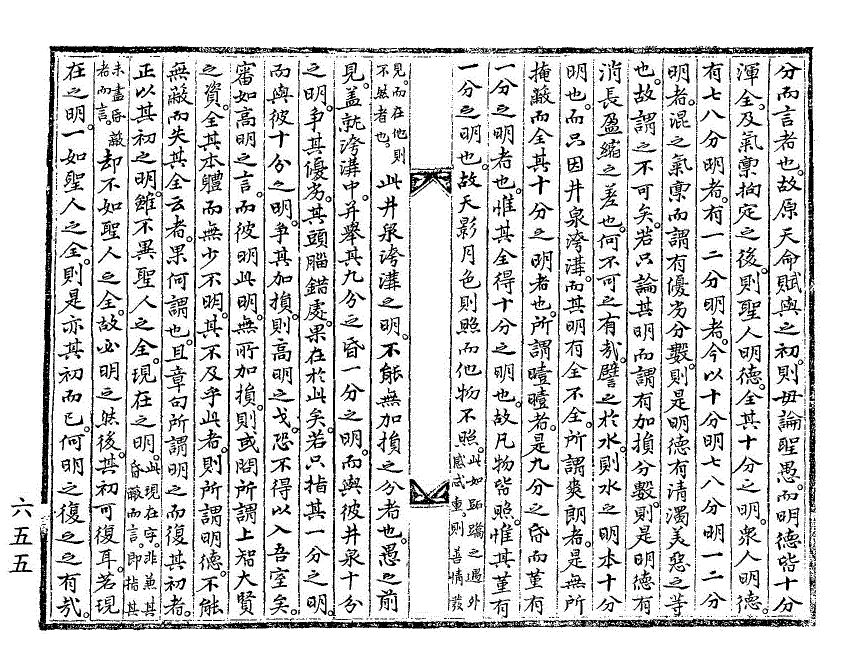 分而言者也故原天命賦與之初則毋論聖愚而明德皆十分
渾全及氣稟拘定之後則聖人明德全其十分之明衆人明德
有七八分明者有一二分明者今以十分明七八分明一二分
明者混之氣稟而謂有優劣分數則是明德有淸濁美惡之等
也故謂之不可矣若只論其明而謂有加損分數則是明德有
消長盈縮之差也何不可之有哉譬之於水則水之明本十分
明也而只因井泉洿溝而其明有全不全所謂爽朗者是無所
掩蔽而全其十分之明者也所謂曀曀者是九分之昏而菫有
一分之明者也惟其全得十分之明也故凡物皆照惟其菫有
一分之明也故天影月色則照而他物不照此如跖蹻之遇外
感甚重則善情發
見而在他則
不然者也此井泉洿溝之明不能無加損之分者也愚之前
見盖就洿溝中并擧其九分之昏一分之明而與彼井泉十分
之明爭其優劣其頭腦錯處果在於此矣若只指其一分之明
而與彼十分之明爭其加損則高明之戈恐不得以入吾室矣
審如高明之言而彼明此明無所加損則或問所謂上智大賢
之資全其本體而無少不明其不及乎此者則所謂明德不能
無蔽而失其全云者果何謂也且章句所謂明之而復其初者
正以其初之明雖不異聖人之全現在之明此現在字非兼其
昏蔽而言卽指其
未盡昏蔽
者而言却不如聖人之全故必明之然後其初可復耳若現
在之明一如聖人之全則是亦其初而已何明之復之之有哉
六五五